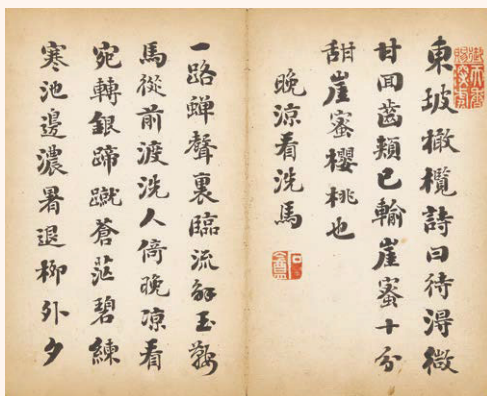 東坡橄欖詩曰待得微
甘囬齒頰已輸崖蜜十分
甜崖蜜櫻桃也
晚涼看洗馬
一路蟬聲裏臨流解玉鞍
馬從前渡洗人倚晚涼看
宛轉銀蹄蹴蒼茫碧練
寒池邊濃暑退柳外夕